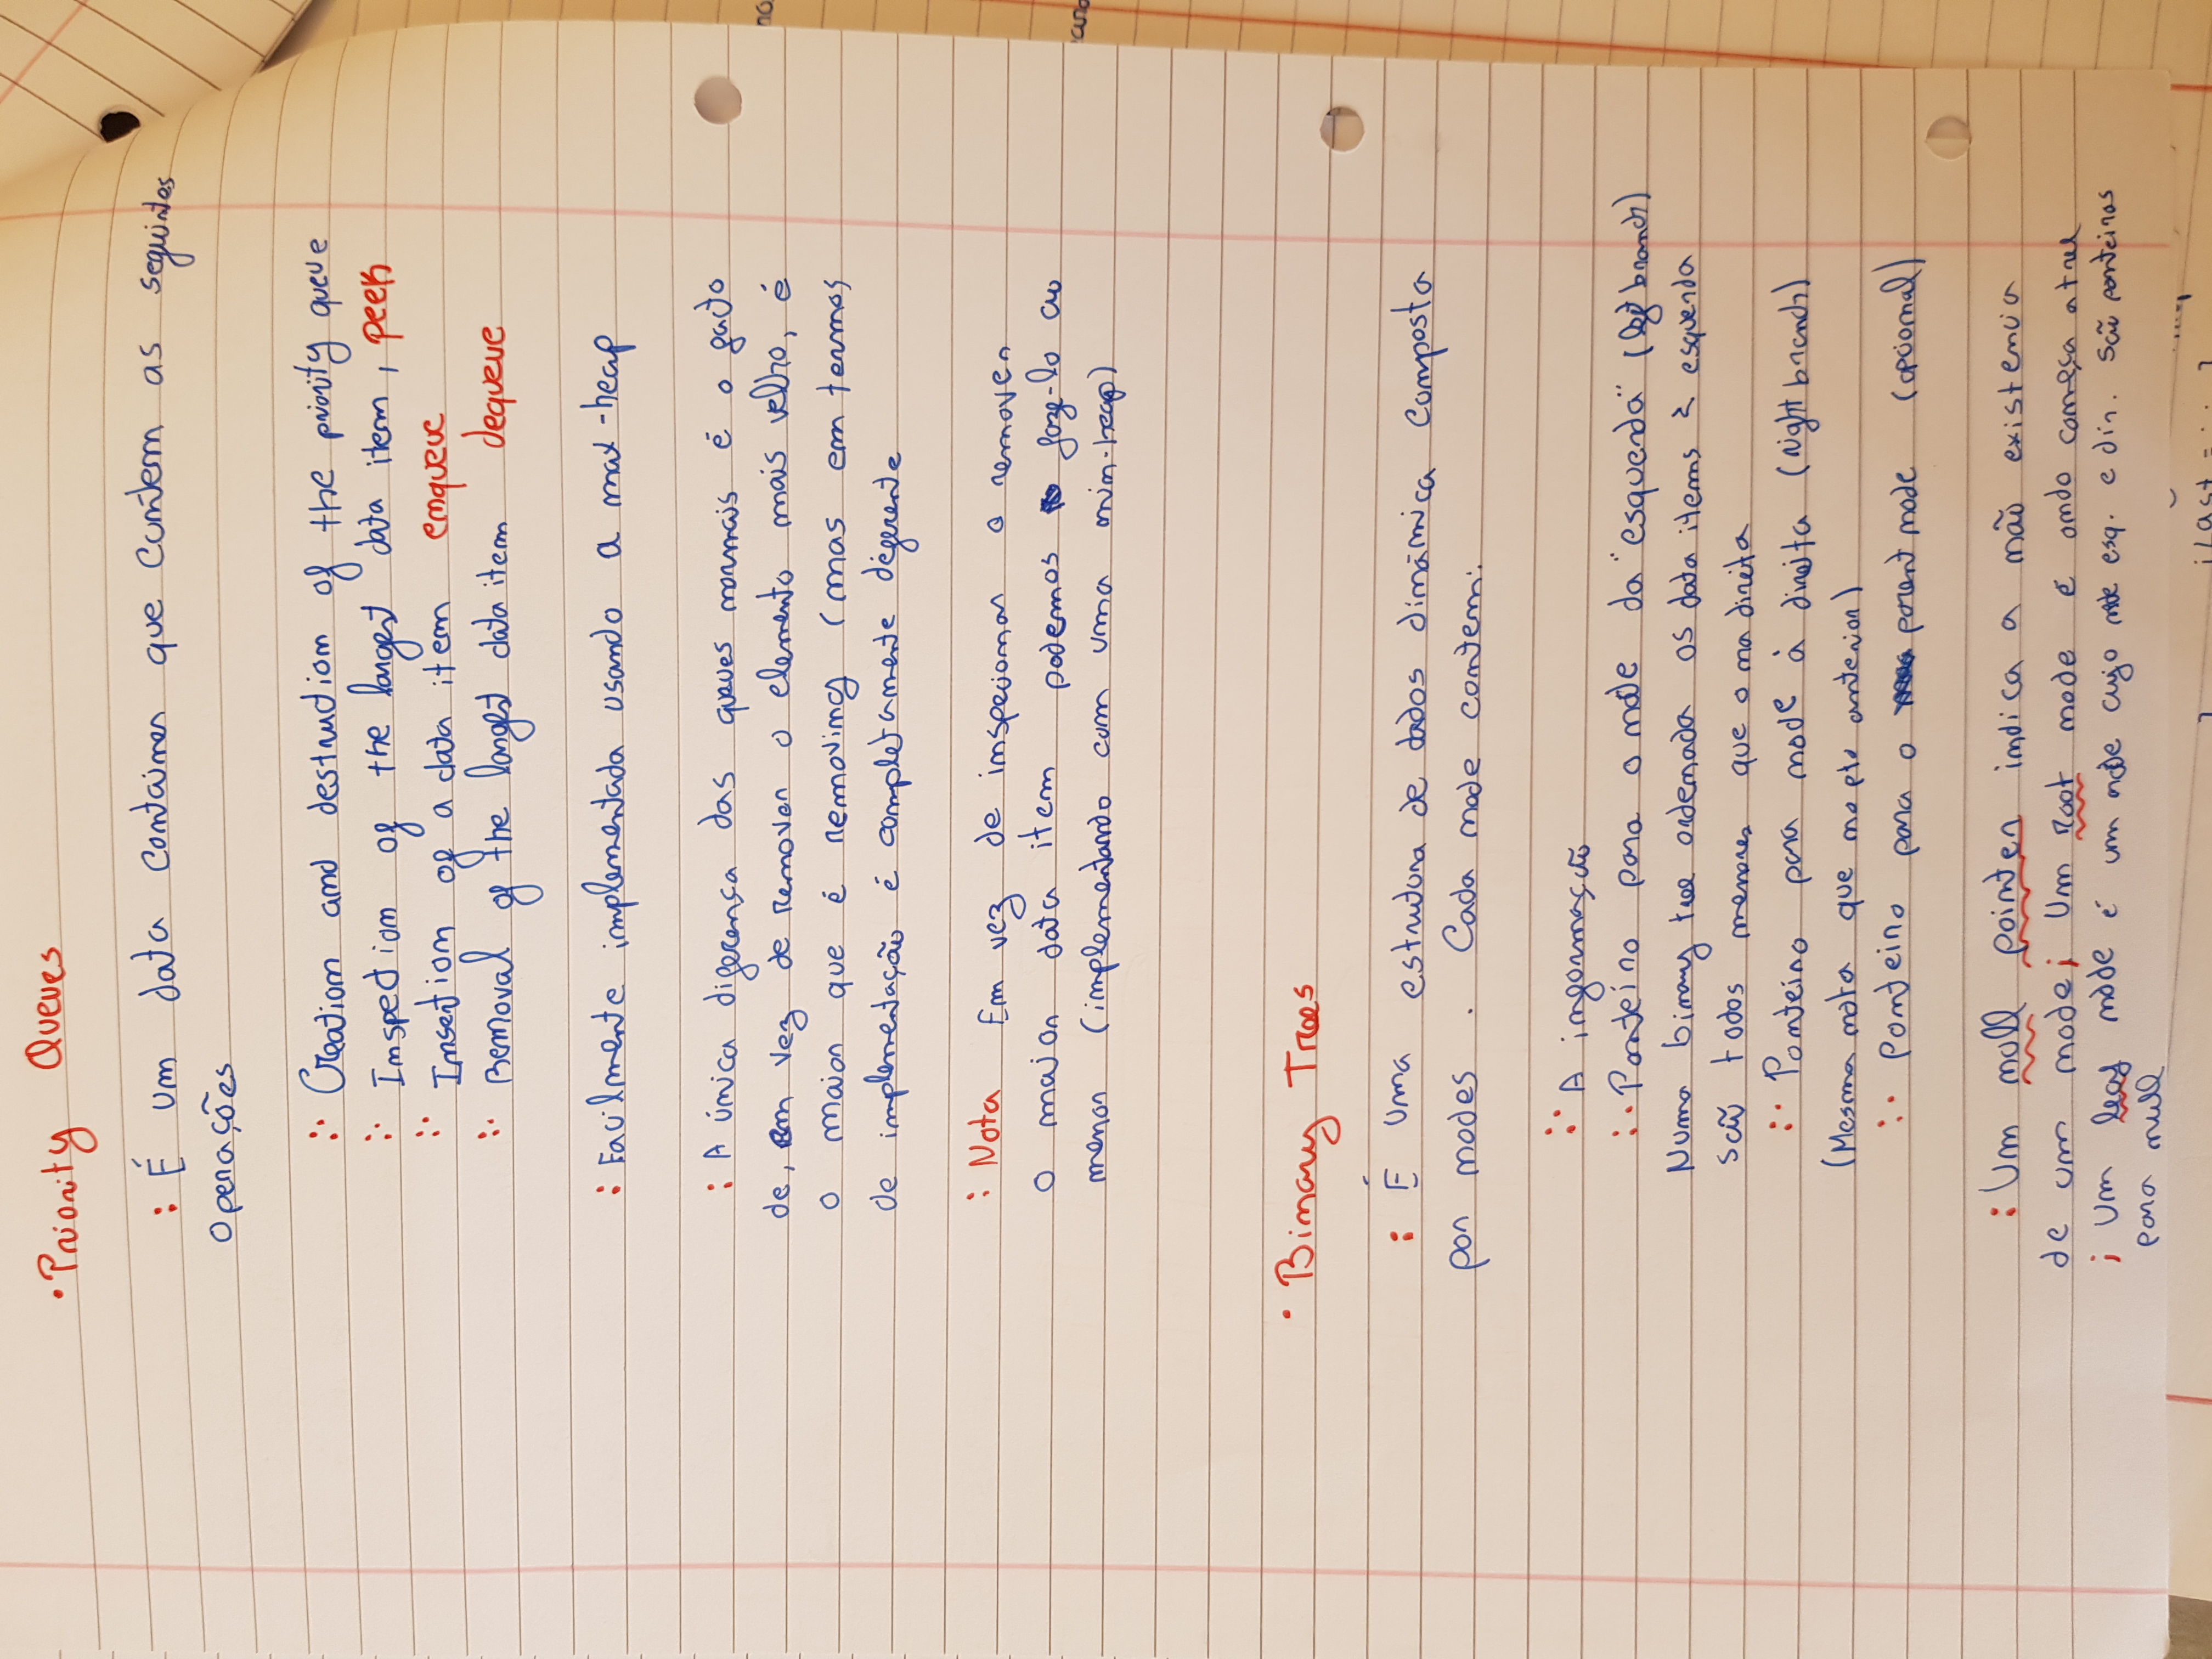 • Priority Queues
: É um data container que contem as seguintes
operações
:· Creation and destruction of the priority queue
:· Inspection of the largest data item, peek
:· Insertion of a data item enqueue
:· Removal of the largest data item dequeue
: Facilmente implementada usando a max-heap
: A única diferença das queues normais é o facto
de, em vez de remover o elemento mais velho, é
o maior que é removing (mas em termos
de implementação é completamente diferente
: Nota Em vez de inspecionar o remover
o maior data item podemos faze-lo ao
menor (implementando com uma min-heap)
• Binary Trees
: É uma estrutura de dados dinâmica composta
por nodes . Cada node contem:
:· A informação
:· Ponteiro para o node da "esquerda" (left branch)
Numa binary tree ordenada os data items à esquerda
são todos menores que o na direita
:· Ponteiro para node à direita (right branch)
(Mesma nota que no pto anterior)
:· Ponteiro para o parent node (opcional)
: Um null pointer indica a não existencia
de um node; Um root node é onde começa a tree
; Um leaf node é um node cujo node esq. e dir. são ponteiros
para null
iLast =